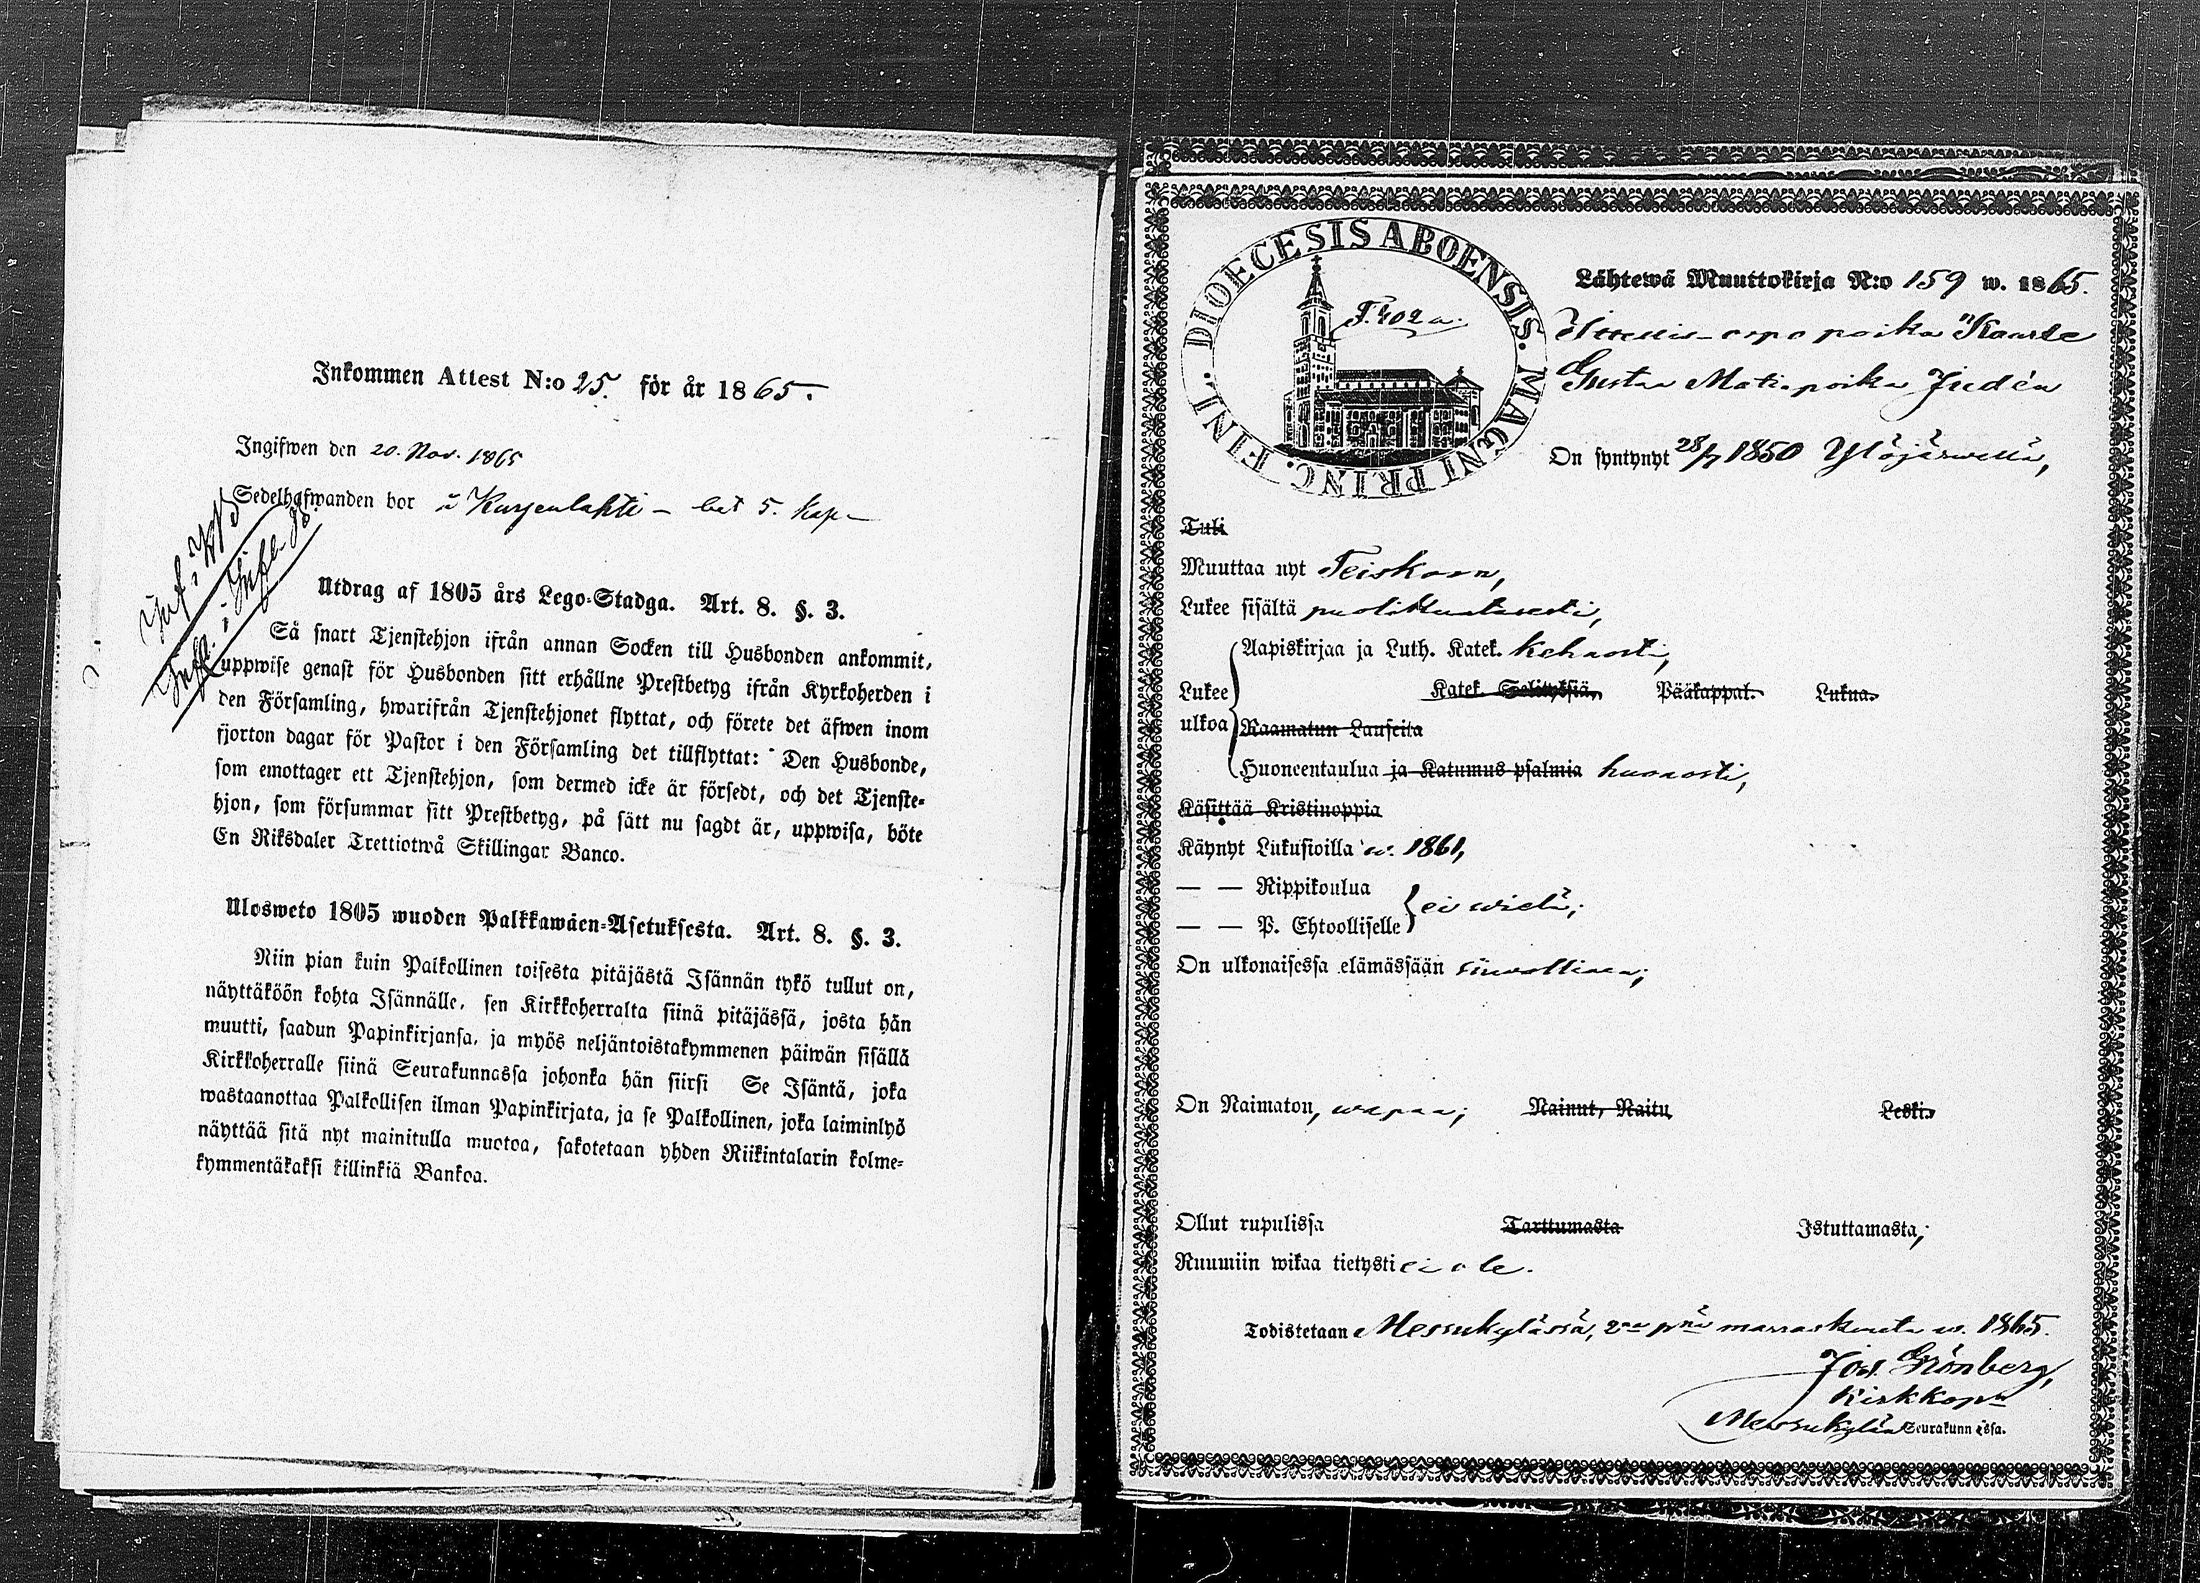 Inkommen Attest N:o 25. för år 1865.
Ingifwen den 20. Nov. 1865
Sedelhafwanden bor i Kurjenlahti – bet 5. kap –
Inf. i
Infl. i Infl.
Utdrag af 1805 års Lego-Stadga. Art. 8. §. 3.
Så snart Tjenstehjon ifrån annan Socken till Husbonden ankommit,
uppwise genast för Husbonden sitt erhållne Prestbetyg ifrån Kyrkoherden i
den Församling, hwarifrån Tjenstehjonet flyttat, och förete det äfwen inom
fjorton dagar för Pastor i den Församling det tillflyttat: Den Husbonde,
som emottager ett Tjenstehjon, som dermed icke är försedt, och det Tjenste-
hjon, som försummar sitt Prestbetyg, på sätt nu sagdt är, uppwisa, böte
En Riksdaler Trettiotwå Skillingar Banco.
Ulosweto 1805 wuoden Palkkawäen-Asetuksesta. Art. 8. §. 3.
Niin pian kuin Palkollinen toisesta pitäjästä Isännän tykö tullut on,
näyttäköön kohta Isännälle, sen Kirkkoherralta siinä pitäjässä, josta hän
muutti, saadun Papinkirjansa, ja myös neljäntoistakymmenen päiwän sisällä
Kirkkoherralle siinä Seurakunnassa johonka hän siirsi Se Isäntä, joka
wastaanottaa Palkollisen ilman Papinkirjata, ja se Palkollinen, joka laiminlyö
näyttää sitä nyt mainitulla muotoa, sakotetaan yhden Riikintalarin kolme-
kymmentäkaksi killinkiä Bankoa.
DIOECESIS ABOENSIS. MAGNI PRINC. FINL.
F. 402 a.
Lähtewä Muuttokirja N:o 159 w. 1865.
poika Kaarle
Gustaa Matinpoika Judén
On syntynyt 28/7 1850 Ylöjärwellä,
Tuli
Muuttaa nyt Teiskoon,
Lukee sisältä puolittuisesti,
Aapiskirjaa ja Luth. Katek. kehnosti,
Lukee ulkoa
Katek. Selityksiä, Pääkappal. Lukua.
Raamatun Lauseita
Huoneentaulua ja Katumus psalmia huonosti,
Käsittää Kristinoppia
Käynyt Lukusioilla w. 1861,
— — Rippikoulua
— — P. Ehtoolliselle
ei wielä;
On ulkonaisessa elämässään siiwollinen;
On Naimaton, wapaa; Nainut, Naitu Leski.
Ollut rupulissa Tarttumasta Istuttamasta;
Ruumiin wikaa tietysti ei ole.
Todistetaan Messukylässä, 2na pnä marraskuuta w. 1865.
Jos. Grönberg,
Kirkkoh
Messukylän Seurakunnassa.